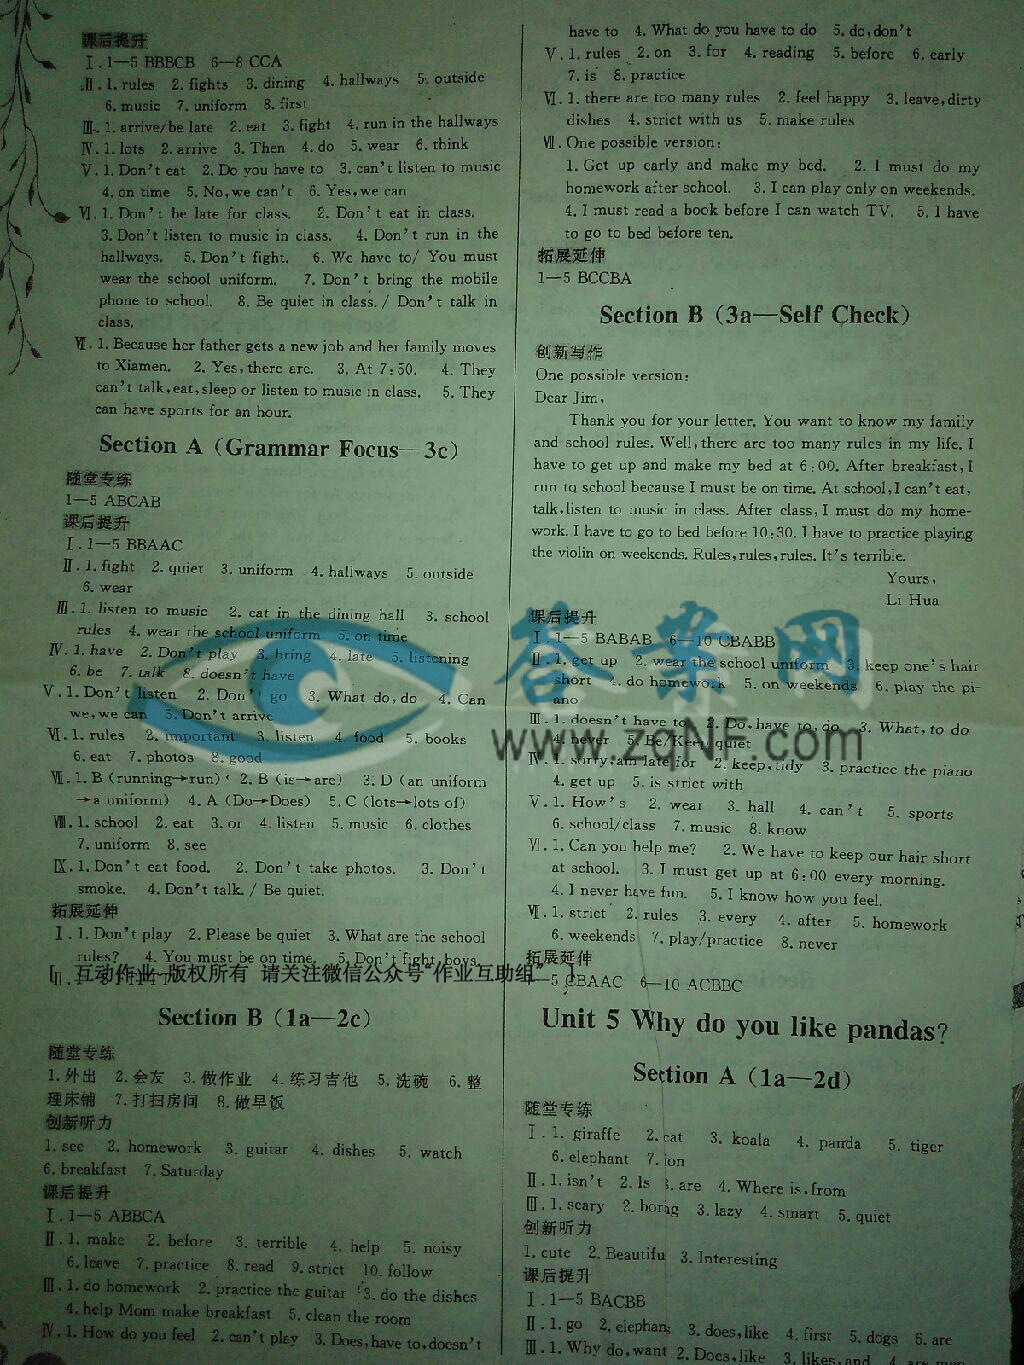 课后提升
Ⅰ.1—5 BBBCB 6—8 CCA
Ⅱ.1. rules 2. fights 3. dining 4. hallways 5. outside
6. music 7. uniform 8. first
Ⅲ.1. arrive/be late 2. eat 3. fight 4. run in the hallways
Ⅳ.1. lots 2. arrive 3. Then 4. do 5. wear 6. think
Ⅴ.1. Don't eat 2. Do you have to 3. can't listen to music
4. on time 5. No, we can't 6. Yes, we can
Ⅵ.1. Don't be late for class. 2. Don't eat in class.
3. Don't listen to music in class. 4. Don't run in the
hallways. 5. Don't fight. 6. We have to/ You must
wear the school uniform. 7. Don't bring the mobile
phone to school. 8. Be quiet in class. / Don't talk in
class.
Ⅶ.1. Because her father gets a new job and her family moves
to Xiamen. 2. Yes, there are. 3. At 7:50. 4. They
can't talk, eat, sleep or listen to music in class. 5. They
can have sports for an hour.
Section A (Grammar Focus—3c)
随堂专练
1—5 ABCAB
课后提升
Ⅰ.1—5 BBAAC
Ⅱ.1. fight 2. quiet 3. uniform 4. hallways 5. outside
6. wear
Ⅲ.1. listen to music 2. eat in the dining hall 3. school
rules 4. wear the school uniform 5. on time
Ⅳ.1. have 2. Don't play 3. bring 4. late 5. listening
6. be 7. talk 8. doesn't have
Ⅴ.1. Don't listen 2. Don't go 3. What do, do 4. Can
we, we can 5. Don't arrive
Ⅵ.1. rules 2. important 3. listen 4. food 5. books
6. eat 7. photos 8. good
Ⅶ.1. B (running→run) 2. B (is→are) 3. D (an uniform
→a uniform) 4. A (Do→Does) 5. C (lots→lots of)
Ⅷ.1. school 2. eat 3. or 4. listen 5. music 6. clothes
7. uniform 8. see
Ⅸ.1. Don't eat food. 2. Don't take photos. 3. Don't
smoke. 4. Don't talk. / Be quiet.
拓展延伸
Ⅰ.1. Don't play 2. Please be quiet 3. What are the school
rules? 4. You must be on time. 5. Don't fight, boys.
[ 互动作业-版权所有 请关注微信公众号“作业互助组” ]
Section B (1a—2c)
随堂专练
1. 外出 2. 会友 3. 做作业 4. 练习吉他 5. 洗碗 6. 整
理床铺 7. 打扫房间 8. 做早饭
创新听力
1. see 2. homework 3. guitar 4. dishes 5. watch
6. breakfast 7. Saturday
课后提升
Ⅰ.1—5 ABBCA
Ⅱ.1. make 2. before 3. terrible 4. help 5. noisy
6. leave 7. practice 8. read 9. strict 10. follow
Ⅲ.1. do homework 2. practice the guitar 3. do the dishes
4. help Mom make breakfast 5. clean the room
Ⅳ.1. How do you feel 2. can't play 3. Does, have to, doesn't
have to 4. What do you have to do 5. do, don't
Ⅴ.1. rules 2. on 3. for 4. reading 5. before 6. early
7. is 8. practice
Ⅵ.1. there are too many rules 2. feel happy 3. leave, dirty
dishes 4. strict with us 5. make rules
Ⅶ. One possible version:
1. Get up early and make my bed. 2. I must do my
homework after school. 3. I can play only on weekends.
4. I must read a book before I can watch TV. 5. I have
to go to bed before ten.
拓展延伸
1—5 BCCBA
Section B (3a—Self Check)
创新写作
One possible version:
Dear Jim,
Thank you for your letter. You want to know my family
and school rules. Well, there are too many rules in my life. I
have to get up and make my bed at 6:00. After breakfast, I
run to school because I must be on time. At school, I can't eat,
talk, listen to music in class. After class, I must do my home-
work. I have to go to bed before 10:30. I have to practice playing
the violin on weekends. Rules, rules, rules. It's terrible.
Yours,
Li Hua
课后提升
Ⅰ.1—5 BABAB 6—10 CBABB
Ⅱ.1. get up 2. wear the school uniform 3. keep one's hair
short 4. do homework 5. on weekends 6. play the pi-
ano
Ⅲ.1. doesn't have to 2. Do, have to, do 3. What, to do
4. never 5. Be/Keep quiet
Ⅳ.1. sorry, am late for 2. keep, tidy 3. practice the piano
4. get up 5. is strict with
Ⅴ.1. How's 2. wear 3. hall 4. can't 5. sports
6. school/class 7. music 8. know
Ⅵ.1. Can you help me? 2. We have to keep our hair short
at school. 3. I must get up at 6:00 every morning.
4. I never have fun. 5. I know how you feel.
Ⅶ.1. strict 2. rules 3. every 4. after 5. homework
6. weekends 7. play/practice 8. never
拓展延伸
1—5 CBAAC 6—10 ACBBC
Unit 5 Why do you like pandas?
Section A (1a—2d)
随堂专练
Ⅰ.1. giraffe 2. cat 3. koala 4. panda 5. tiger
6. elephant 7. lion
Ⅱ.1. isn't 2. Is 3. are 4. Where is, from
Ⅲ.1. scary 2. boring 3. lazy 4. smart 5. quiet
创新听力
1. cute 2. Beautiful 3. Interesting
课后提升
Ⅰ.1—5 BACBB
Ⅱ.1. go 2. elephants 3. does, like 4. first 5. dogs 6. are
Ⅲ.1. Why do, want 2. Does, like 3. likes, and 4. are
答案网
www.zqnf.com